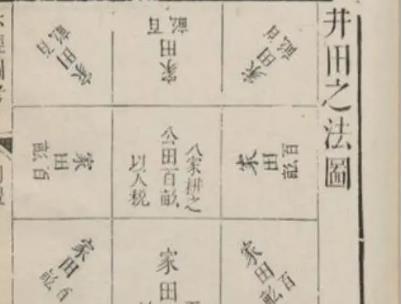 井田之法圖
家田百畝
家田百畝
家田百畝
家田百畝
八家耕之
公田百畝
以入税
家田百畝
家田百畝
家田
家田百畝